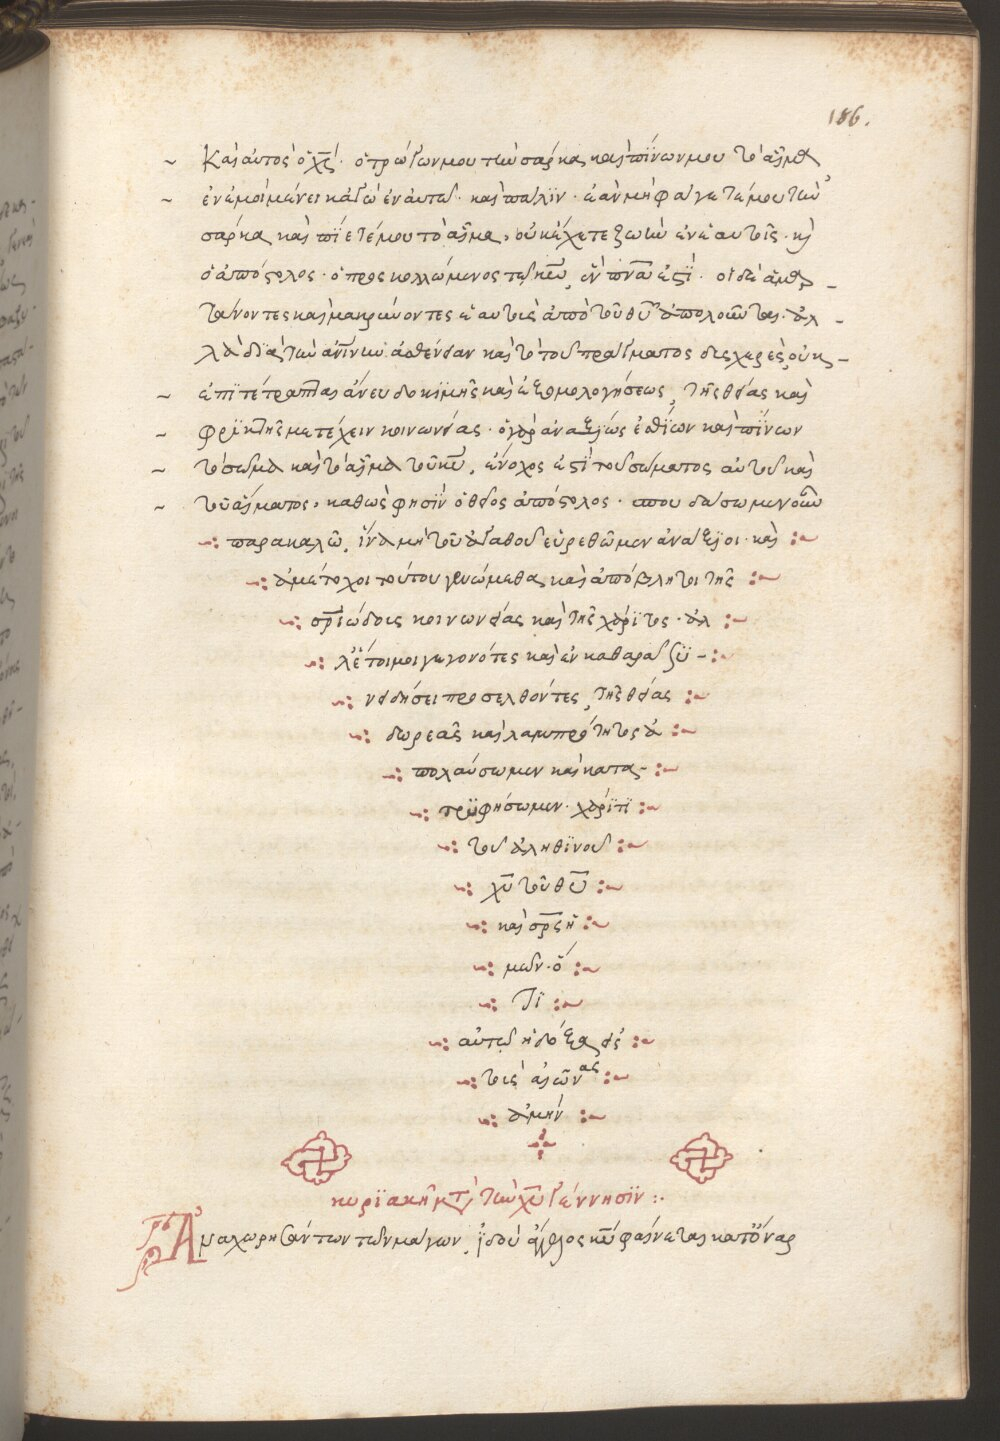 186.
Καὶ αὐτὸς ὁ χς̅· ὁ τρώγων μου τὴν σάρκα καὶ πίνων μου τὸ αἷμα
ἐν ἐμοὶ μένει κἀγὼ ἐν αὐτῶ· καὶ πάλϊν· ἐὰν μὴ φάγητέ μου τὴν
σάρκα καὶ πίετέ μου τὸ αἷμα, οὐκ ἔχετε ζωὴν ἐν ἑαυτοῖς· κὶ
ὁ ἀπόστολος· ὁ προσκολλώμενος τῶ κω̅, ἓν πνα̅ ἐστϊ· οἱ δὲ ἀμα
ταίνοντες καὶ μακρύνοντες ἑαυτοὺς ἀπὸ τοῦ θυ̅ ἀπολοῦνται· ἀλ
λὰ δϊὰ τὴν ἀνι̅νων ἀσθένειαν καὶ τὸ τοῦ πράγματος δυσχερὲς, οὐκ
ἐπϊτέτραπται ἄνευ δοκϊμῆς καὶ ἐξομολογήσεως, τῆς θείας καὶ
φρϊκτῆς μετέχειν κοινωνίας· ὁ γὰρ ἀναξίως ἐσθΐων καὶ πΐνων
τὸ σῶμα καὶ τὸ αἷμα τοῦ κυ̅, ἔνοχος ἐστϊ τοῦ σώματος αὐτοῦ καὶ
τοῦ αἵματος, καθὼς φησὶν ὁ θεῖος ἀπόστολος· σπουδάσωμεν οὖν
παρακαλῶ, ἵνα μὴ τοῦ ἀγαθοῦ εὑρεθῶμεν ἀνάξϊοι· καὶ
ἀμέτοχοι τούτου γενώμεθα, καὶ ἀπόβλητοι τῆς
σρ̅ιώδους κοινωνίας καὶ τῆς χάρϊτος· ἀλ
λ' ἕτοιμοι γεγονότες καὶ ἐν καθαρᾶ συ
νειδήσει προσελθόντες, τῆς θείας
δωρεᾶς καὶ λαμπρότητος ἀ
πολαύσωμεν καὶ κατα
τρϋφήσωμεν· χάρϊτϊ
τοῦ ἀληθϊνοῦ
χυ̅ τοῦ θυ̅
καὶ σρ̅ς ἡ
μῶν· ὅ
Τϊ
αὐτῶ ἡ δόξα εἰς
τοὺς αἰῶνας
ἀμήν
κυρϊακῆ μετὰ τὴν χυ̅ γέννησϊν
Ἀναχωρησάντων τῶν μάγων, ἰδοὺ ἄγγελος κυ̅ φαίνεται κατ' ὄναρ